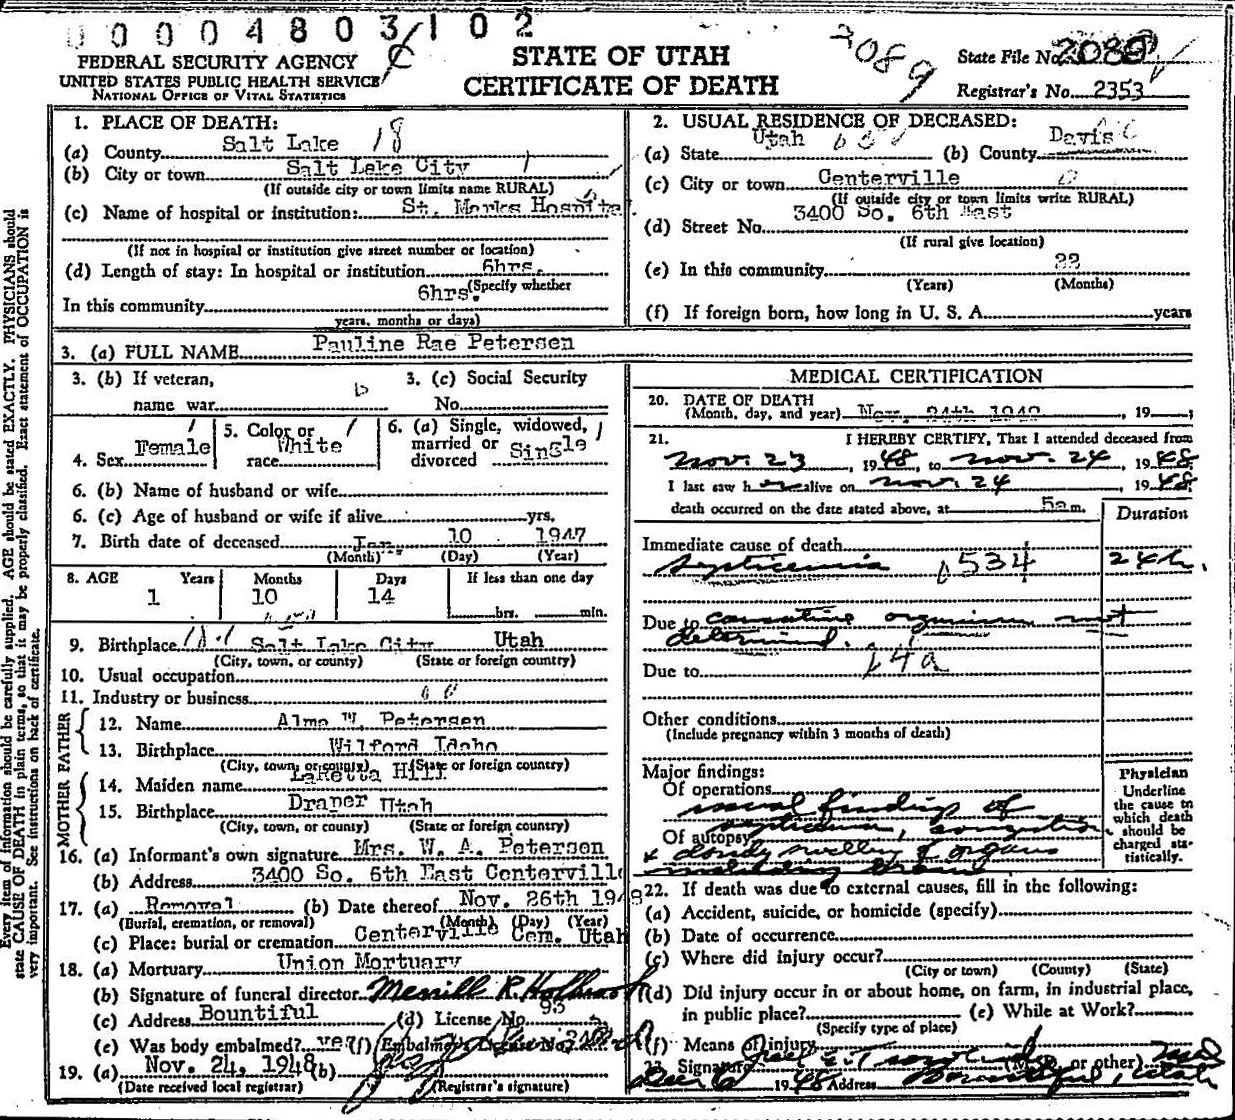 0 0 0 0 4 8 0 3 1 0 2
FEDERAL SECURITY AGENCY
UNITED STATES PUBLIC HEALTH SERVICE
NATIONAL OFFICE OF VITAL STATISTICS
STATE OF UTAH
CERTIFICATE OF DEATH
2089
State File No. 2089
Registrar's No. 2353
1. PLACE OF DEATH:
(a) County Salt Lake 18
(b) City or town Salt Lake City
(If outside city or town limits name RURAL)
(c) Name of hospital or institution: St. Marks Hospital
(If not in hospital or institution give street number or location)
(d) Length of stay: In hospital or institution 6hrs.
(Specify whether
In this community 6hrs.
years, months or days)
2. USUAL RESIDENCE OF DECEASED:
(a) State Utah (b) County Davis
(c) City or town Centerville
(If outside city or town limits write RURAL)
(d) Street No. 3400 So. 6th East
(If rural give location)
(e) In this community 22
(Years) (Months)
(f) If foreign born, how long in U. S. A. years
3. (a) FULL NAME Pauline Rae Petersen
3. (b) If veteran, name war
3. (c) Social Security No.
4. Sex Female
5. Color or race White
6. (a) Single, widowed, married or divorced Single
6. (b) Name of husband or wife
6. (c) Age of husband or wife if alive yrs.
7. Birth date of deceased Jan 10 1947
(Month) (Day) (Year)
8. AGE Years Months Days If less than one day
1 10 14 hrs. min.
9. Birthplace Salt Lake City Utah
(City, town, or county) (State or foreign country)
10. Usual occupation
11. Industry or business
FATHER
12. Name Alma W. Petersen
13. Birthplace Wilford Idaho
(City, town, or county) (State or foreign country)
MOTHER
14. Maiden name LaRetta Hill
15. Birthplace Draper Utah
(City, town, or county) (State or foreign country)
16. (a) Informant's own signature Mrs. W. A. Petersen
(b) Address 3400 So. 6th East Centerville
17. (a) Removal (b) Date thereof Nov. 26th 1948
(Burial, cremation, or removal) (Month) (Day) (Year)
(c) Place: burial or cremation Centerville Cem. Utah
18. (a) Mortuary Union Mortuary
(b) Signature of funeral director Merrill R. Holbrook
(c) Address Bountiful (d) License No. 93
(e) Was body embalmed? yes (f) Embalmer's License No.
19. (a) Nov. 24, 1948 (b)
(Date received local registrar) (Registrar's signature)
MEDICAL CERTIFICATION
20. DATE OF DEATH
(Month, day, and year) Nov. 24th 1948, 19
21. I HEREBY CERTIFY, That I attended deceased from
Nov. 23, 1948, to Nov. 24, 1948.
I last saw her alive on Nov. 24 1948.
death occurred on the date stated above, at 5a m.
Duration
Immediate cause of death
Septicemia 534 24 h.
Due to causative organism not
determined.
Due to 24a
Other conditions
(Include pregnancy within 3 months of death)
Major findings:
Of operations
usual findings of
Of autopsy septicemia, congestion
& cloudy swelling of organs
including brain
Physician
Underline
the cause to
which death
should be
charged sta-
tistically.
22. If death was due to external causes, fill in the following:
(a) Accident, suicide, or homicide (specify)
(b) Date of occurrence
(c) Where did injury occur?
(City or town) (County) (State)
(d) Did injury occur in or about home, on farm, in industrial place,
in public place? (e) While at Work?
(Specify type of place)
(f) Means of injury
Signature (M.D. or other) M.D.
1948 Address Bountiful, Utah
Every item of information should be carefully supplied. AGE should be stated EXACTLY. PHYSICIANS should
state CAUSE OF DEATH in plain terms, so that it may be properly classified. Exact statement of OCCUPATION is
very important. See instructions on back of certificate.